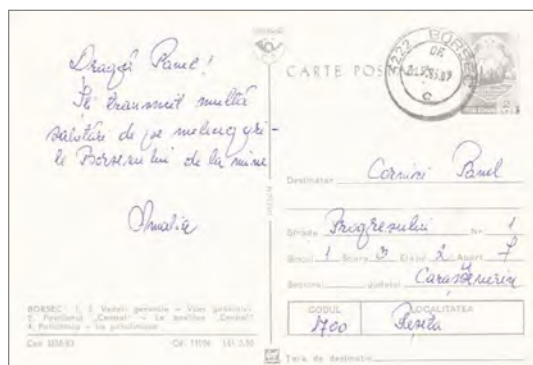 Dragă Panel!
Îți transmit multă
salutări de pe
le Borsecului de la mine
Amalia
BORSEC: 1, 3. Vedere generală – Vues générales
2. Pavilionul „Central” – Le pavillon „Central”
4. Policlinica – La policlinique
CARTE POȘTALĂ
4222 BORSEC
Destinatar Panel
Strada Progresului Nr. 1
Blocul 1 Scara 3 Etajul 2 Apart. 7
Sectorul Județul Caraș Severin
CODUL LOCALITATEA
1700 Reșița
Țara de destinație